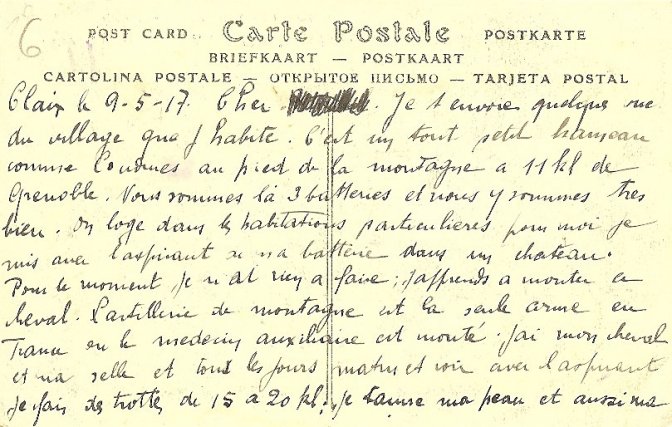 6
POST CARD — Carte Postale — POSTKARTE
BRIEFKAART — POSTKAART
CARTOLINA POSTALE — ОТКРЫТОЕ ПИСЬМО — TARJETA POSTAL
Claix le 9-5-17. Cher . Je t envoies quelques vue
du village que j habite. C'est un tout petit hameau
comme au pied de la montagne a 11 kl de
Grenoble. Nous sommes là 3 batteries et nous y sommes tres
bien. On loge dans les habitations particulieres pour moi je
suis avec l'aspirant de ma batterie dans un chateau.
Pour le moment je n'ai rien a faire; j'apprends a monter a
cheval. L'artillerie de montagne est la seule arme en
France ou le medecin auxiliaire est monté. J'ai mon cheval
et ma selle et tous les jours matin et soir avec l'aspirant
je fais des trottes de 15 a 20 kl. Je tanne ma peau et aussi ma